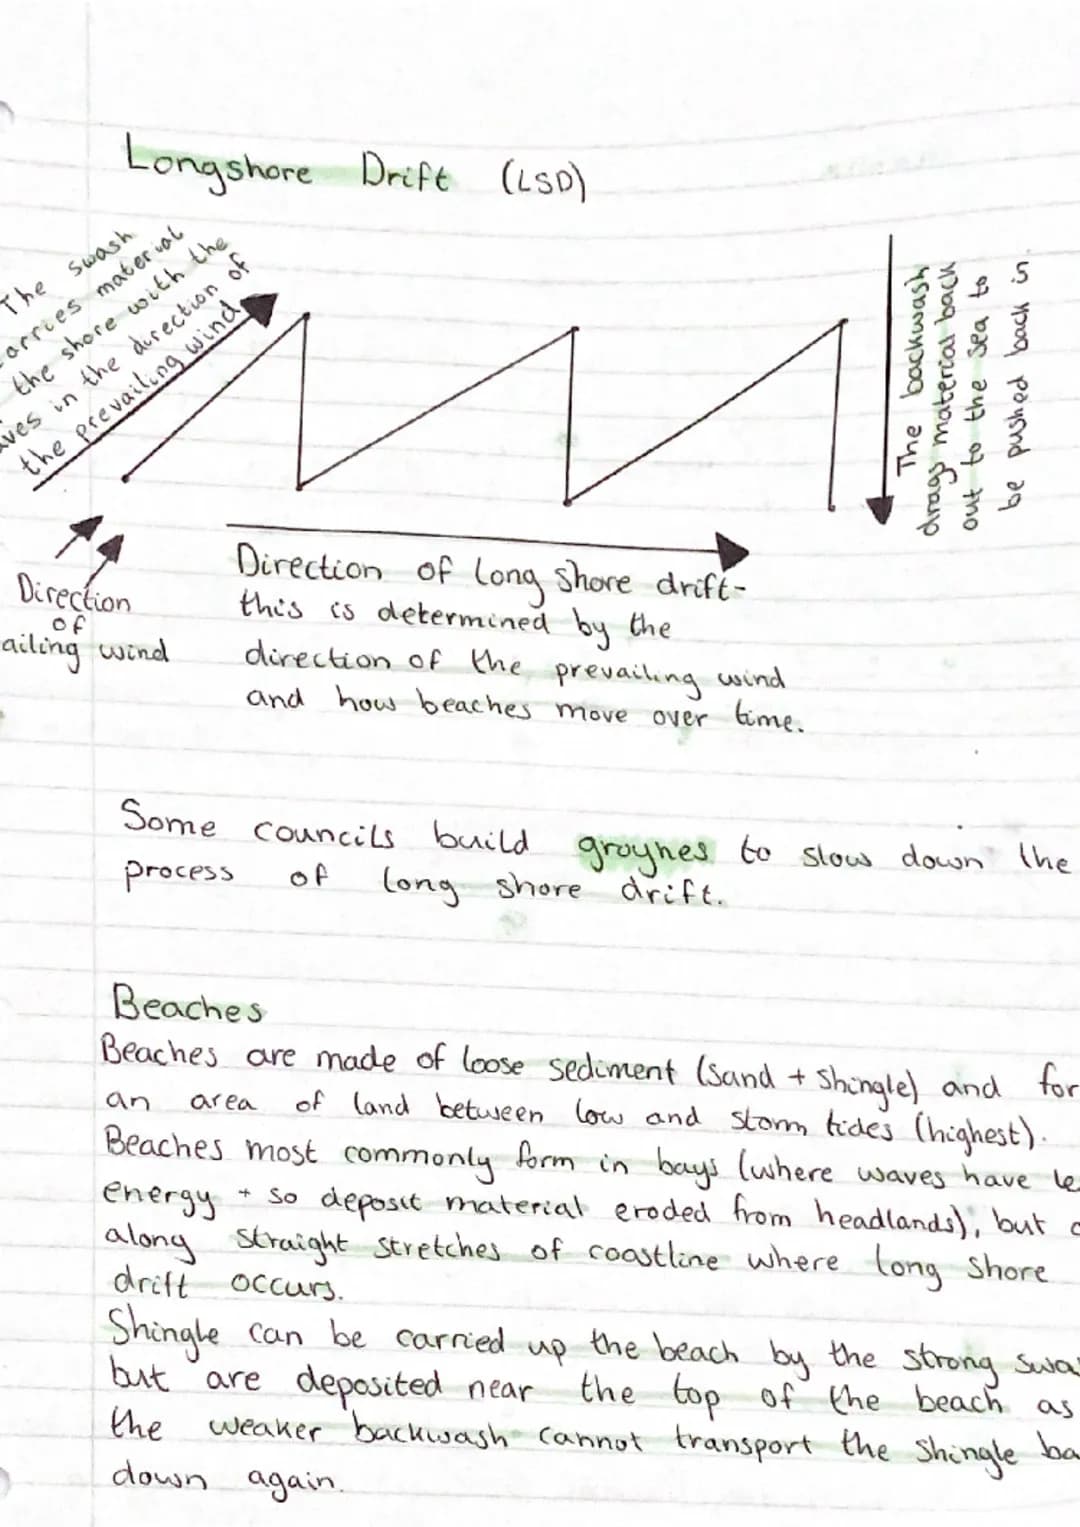 Longshore Drift (LSD)
The swash
carries material
the shore with the
in the direction of
the prevailing wind
The backwash
drags material back
out to the sea to
be pushed back in.
Direction
of
wind
Direction of long shore drift-
this is determined by the
direction of the prevailing wind
and how beaches move over time.
Some councils build groynes to slow down the
process of long shore drift.
Beaches
Beaches are made of loose sediment (sand + shingle) and for
an area of land between low and storm tides (highest).
Beaches most commonly form in bays (where waves have le
energy + so deposit material eroded from headlands), but
along straight stretches of coastline where long shore
drift occurs.
Shingle can be carried up the beach by the strong swa
but are deposited near the top of the beach as
the weaker backwash cannot transport the shingle ba
down again.